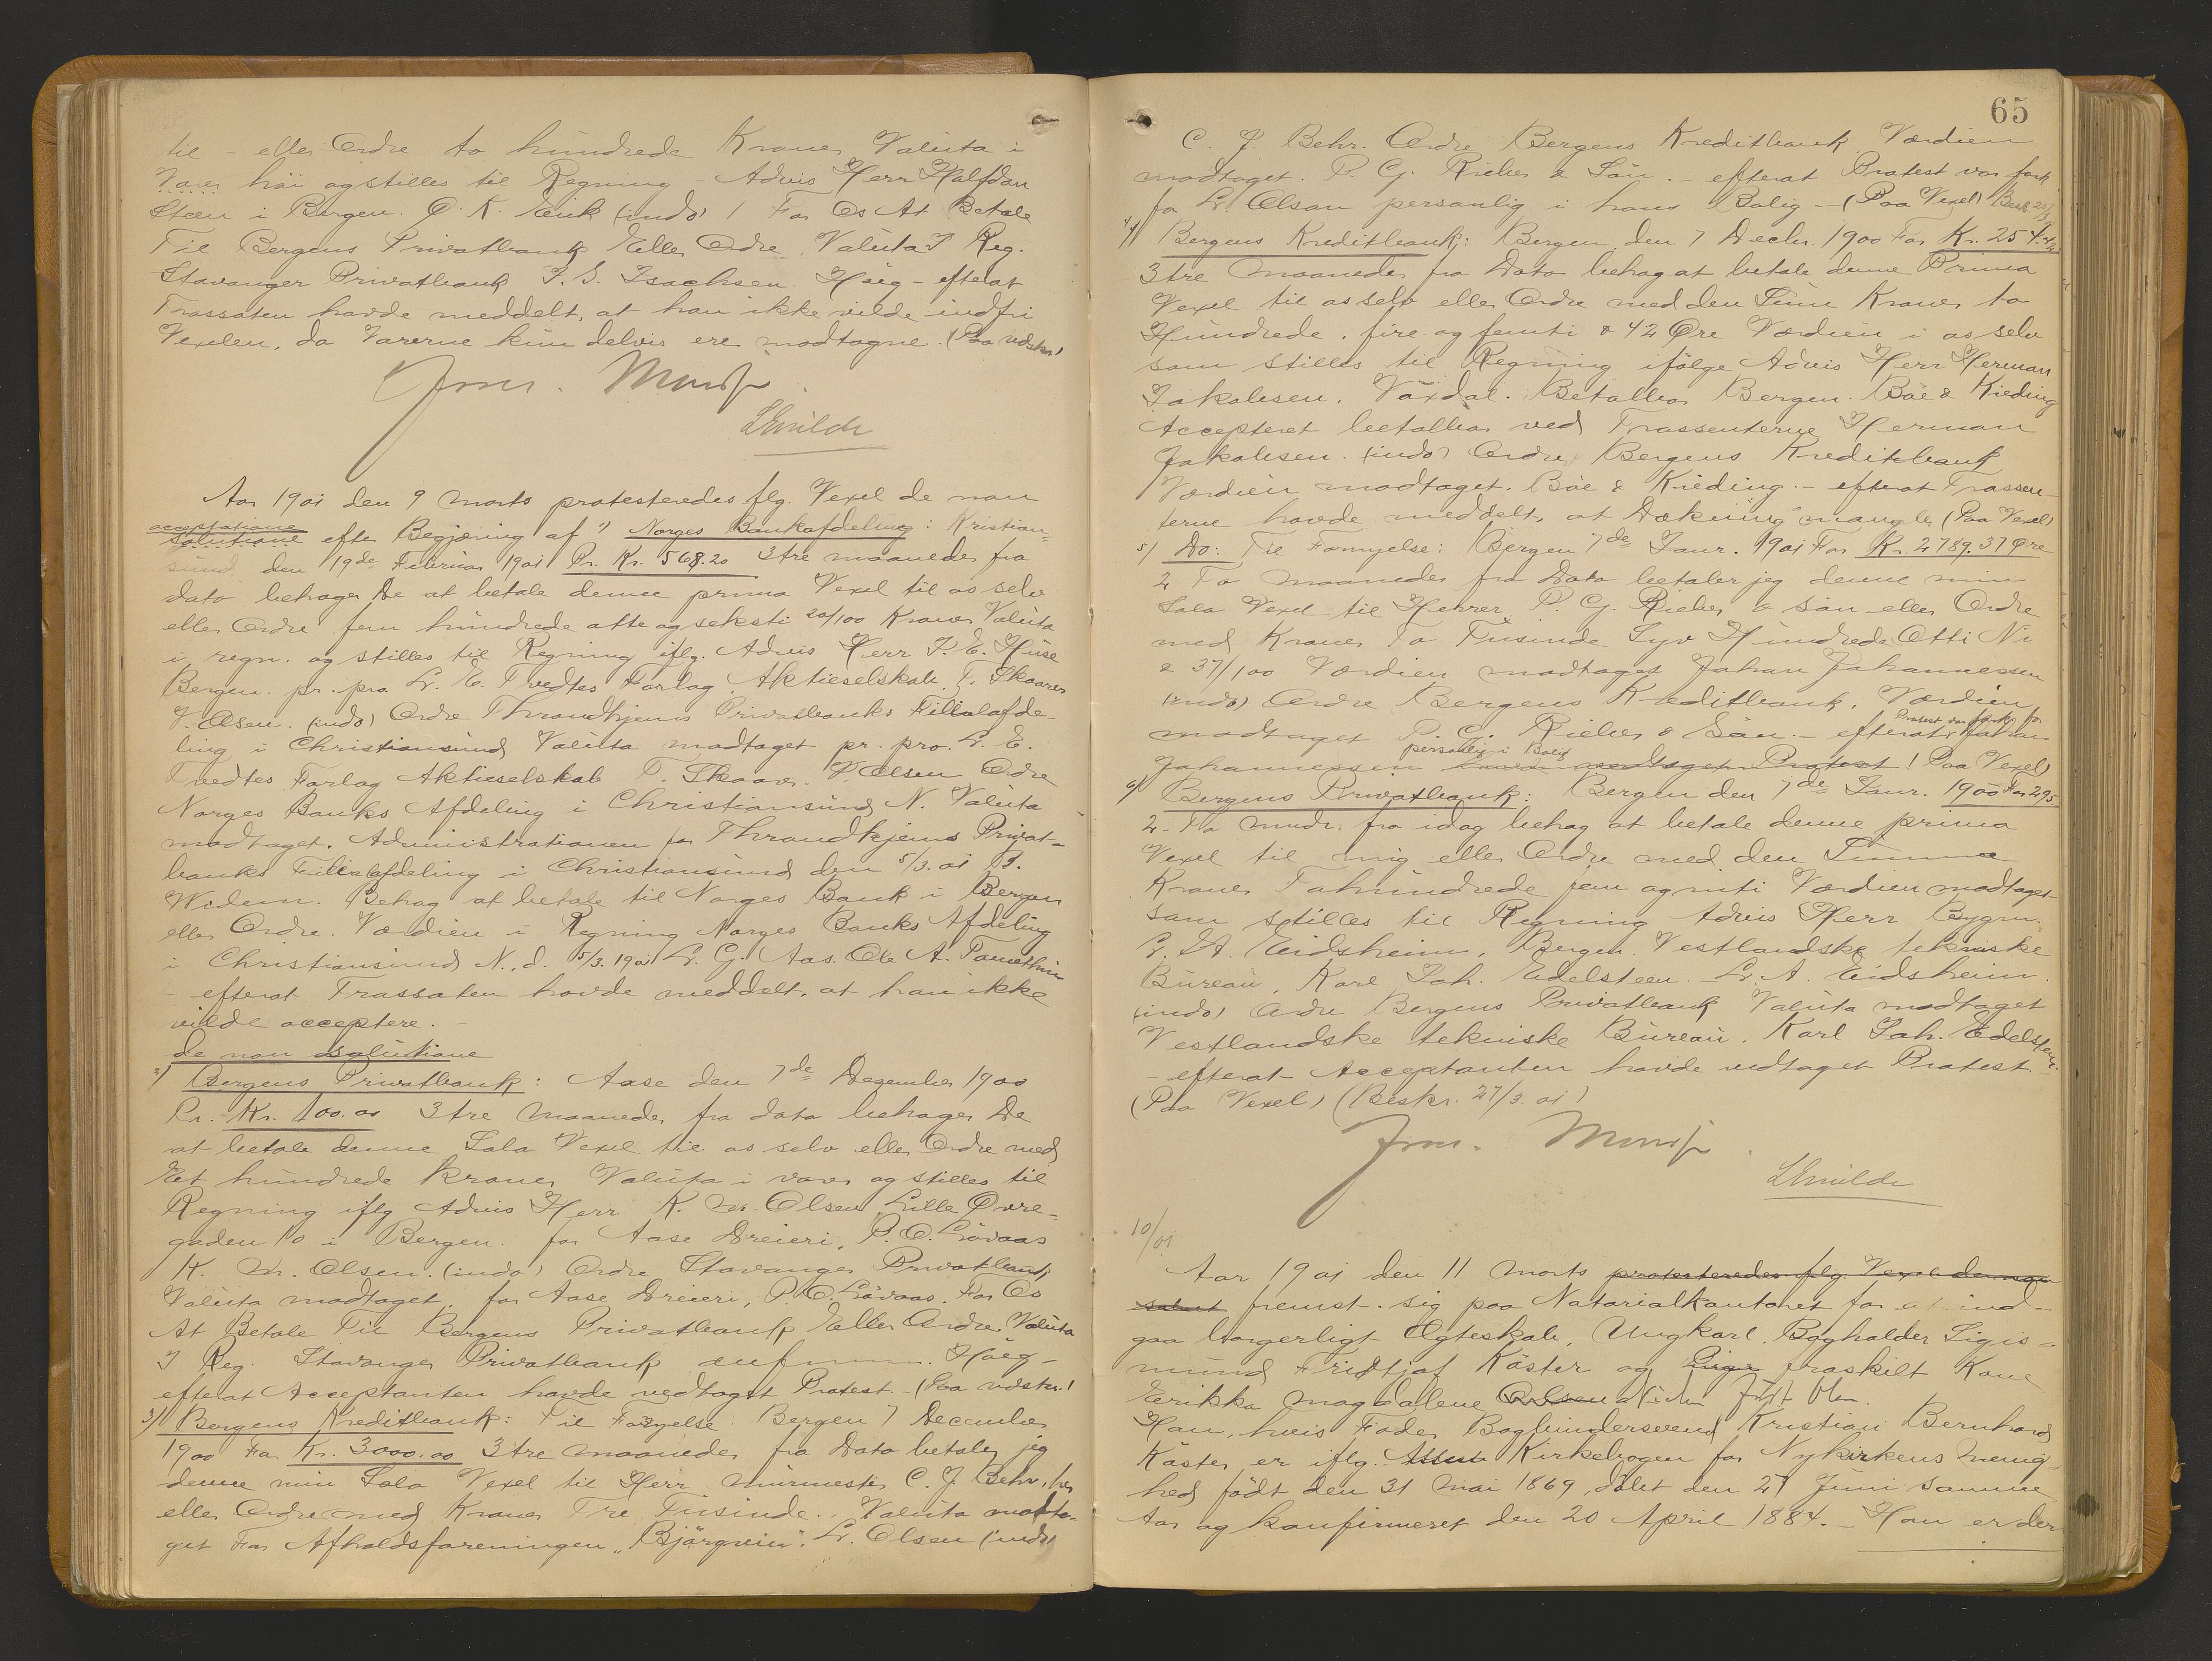 til - eller Ordre to hundrede Kroner Valuta i
Varer hei og stilles til Regning - Advis Herr Halfdan
Steen i Bergen. O. K. Erik (indo) / For Os At Betale
Til Bergens Privatbank Eller Ordre. Valuta I Reg.
Stavanger Privatbank I. S. Isachsen Høeg - efterat
Trassaten havde meddelt, at han ikke vilde indfri
Vexelen, da Varerne kun delvis ere modtagne. (Paa udstn)
Aar 1901 den 9 Marts protesteredes flg. Vexel de non
acceptatione
solutione efter Begjæring af 1) Norges Bankafdeling: Kristian-
sund den 19de Februar 1901 Pr. Kr. 568.20 3 tre maaneder fra
dato behager De at betale denne prima Vexel til os selv
eller Ordre fem hundrede otte og seksti 20/100 Kroner Valuta
i regn. og stilles til Regning iflg. Advis Herr P. E. Huse
Bergen. pr. pro. L. E. Tvedtes Forlag, Aktieselskab. T. Skaarer
V. Olsen. (indo) Ordre Throndhjems Privatbanks Filialafde-
ling i Christiansund Valuta modtaget pr. pro. L. E.
Tvedtes Forlag Aktieselskab T. Skaar. V. Olsen Ordre
Norges Banks Afdeling i Christiansund N. Valuta
modtaget. Administrationen for Throndhjems Privat-
banks Filialafdeling i Christiansund den 5/3. 01 P.
Widem. Behag at betale til Norges Bank i Bergen
eller Ordre. Værdien i Regning Norges Banks Afdeling
i Christiansund N., d. 5/3. 1901 L. G. Aas. Ole A.
- efterat Trassaten havde meddelt, at han ikke
vilde acceptere. -
de non solutione
2) Bergens Privatbank: Aase den 7de Dezember 1900
Pr. Kr. 100.00 3 tre Maaneder fra dato behager De
at betale denne Sola Vexel til os selv eller Ordre med
Et hundrede Kroner Valuta i varer og stilles til
Regning iflg Advis Herr K. M. Olsen, Lille Øvre-
gaden 10 i Bergen. for Aase Dreieri, P. O. Løvaas
K. M. Olsen. (indo) Ordre Stavanger Privatbank
Valuta modtaget. for Aase Dreieri, P. O. Løvaas. For Os
At Betale Til Bergens Privatbank Eller Ordre. Valuta
I Reg. Stavanger Privatbank Høeg -
efterat Acceptanten havde vedtaget Protest. - (Paa udstn.)
3) Bergens Kreditbank: Til Fornyelse: Bergen 7 December
1900 For Kr. 3000.00 3 tre maaneder fra Dato betaler jeg
denne min Sola Vexel til Herr Murmester C. J. Behr, her
eller Ordre med Kroner Tre Tusinde. Valuta modta-
get For Afholdsforeningen "Bjørgvin". L. Olsen (indo)
65
C. J. Behr. Ordre Bergens Kreditbank Værdien
modtaget. P. G. Rieber & Søn. - efterat Protest var fork.
for L. Olsen personlig i hans Bolig - (Paa Vexel) Besk 25/3
4) Bergens Kreditbank: Bergen den 7 Decbr. 1900 For Kr. 254.42
3 tre Maaneder fra Dato behag at betale denne Prima
Vexel til os selv eller Ordre med den Sum Kroner to
Hundrede, fire og femti & 42 Øre Værdien i os selv
som stilles til Regning ifølge Advis Herr Herman
Jakobsen. Vaxdal. Betalbar Bergen. Bøe & Kieding
Accepteret betalbar ved Trassenterne Herman
Jakobsen. (indo) Ordre Bergens Kreditbank
Værdien modtaget. Bøe & Kieding. - efterat Trassen-
terne havde meddelt, at Dækning mangler (Paa Vexel)
5) Do: Til Fornyelse: Bergen 7de Janr. 1901 For Kr. 2789.37 Øre
2 To Maaneder fra Dato betaler jeg denne min
Sola Vexel til Herrer P. G. Rieber & Søn eller Ordre
med Kroner To Tusinde Syv Hundrede Otti Ni
& 37/100 Værdien modtaget Johan Johannessen
(indo) Ordre Bergens Kreditbank, Værdien
modtaget P. G. Rieber & Søn. - efterat Protest var fork. for Johan
Johannessen personlig i Bolig havde vedtaget Protest! (Paa Vexel)
6) Bergens Privatbank: Bergen den 7de Janr. 1900 For 295-
2 - To mndr. fra idag behag at betale denne prima
Vexel til mig eller Ordre med den Summa
Kroner Tohundrede fem og niti Værdien modtaget
som stilles til Regning Advis Herr Bygm.
L. A. Eidsheim, Bergen. Vestlandske tekniske
Bureau, Karl Joh. Edelsteen. - L. A. Eidsheim.
(indo) Ordre Bergens Privatbank Valuta modtaget
Vestlandske tekniske Bureau. Karl Joh. Edelsteen.
- efterat Acceptanten havde vedtaget Protest. -
(Paa Vexel) (Beskr. 27/3. 01)
10/01
Aar 1901 den 11 Marts protesteredes flg. Vexel de non
solut fremst. sig paa Notarialkontoret for at ind-
gaa borgerligt Ægteskab, Ungkarl, Bogholder Sigis-
mund Fridtjof Køster og Pige fraskilt Kone
Erikka Magdalene Olsen født
Han, hvis Fader Bogbindersvend Kristian Bernhard
Køster, er iflg. Kirkebogen for Nykirkens Menig-
hed født den 31 Mai 1869, døbt den 27 Juni samme
Aar og konfirmeret den 20 April 1884. - Han er der